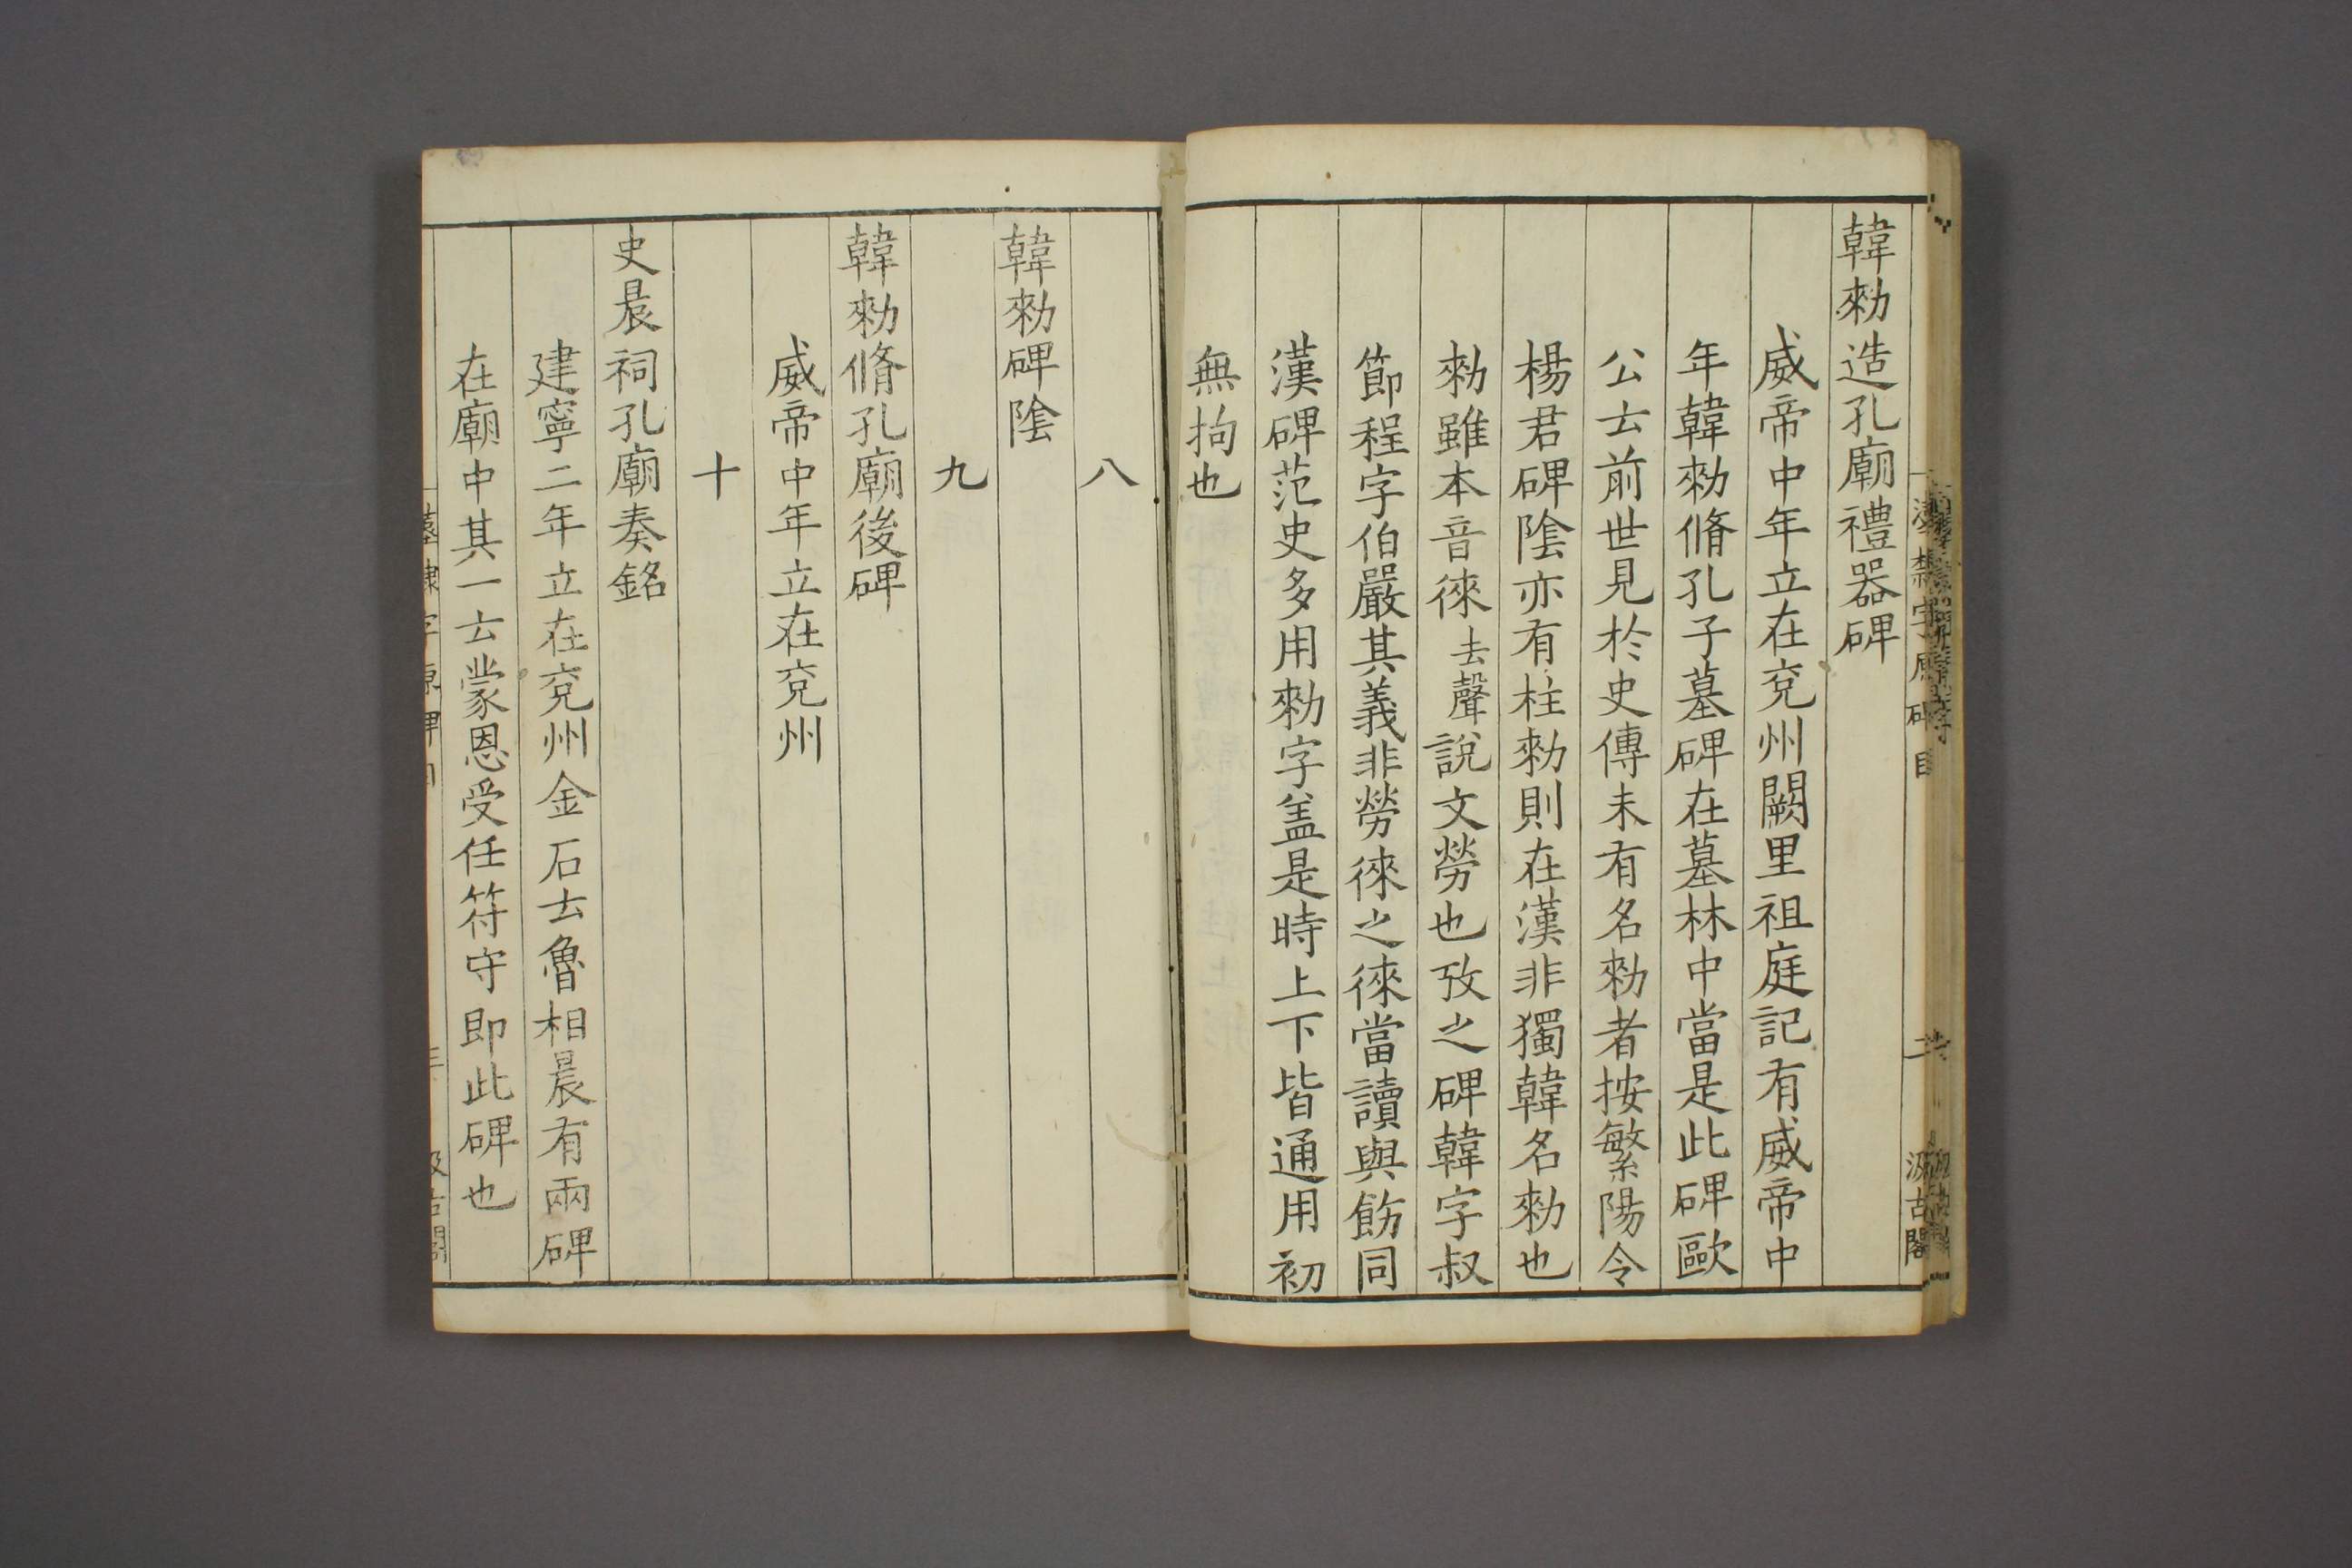 韓勑造孔廟禮器碑
威帝中年立在兗州闕里祖庭記有威帝中
年韓勑脩孔子墓碑在墓林中當是此碑歐
公云前世見於史傳未有名勑者按繁陽令
楊君碑陰亦有柱勑則在漢非獨韓名勑也
勑雖本音徠去聲說文勞也攷之碑韓字叔
節程字伯嚴其義非勞徠之徠當讀與飭同
漢碑范史多用勑字盖是時上下皆通用初
無拘也
八
韓勑碑陰
九
韓勑脩孔廟後碑
威帝中年立在兗州
十
史晨祠孔廟奏銘
建寧二年立在兗州金石云魯相晨有兩碑
在廟中其一云蒙恩受任符守即此碑也
汲古閣